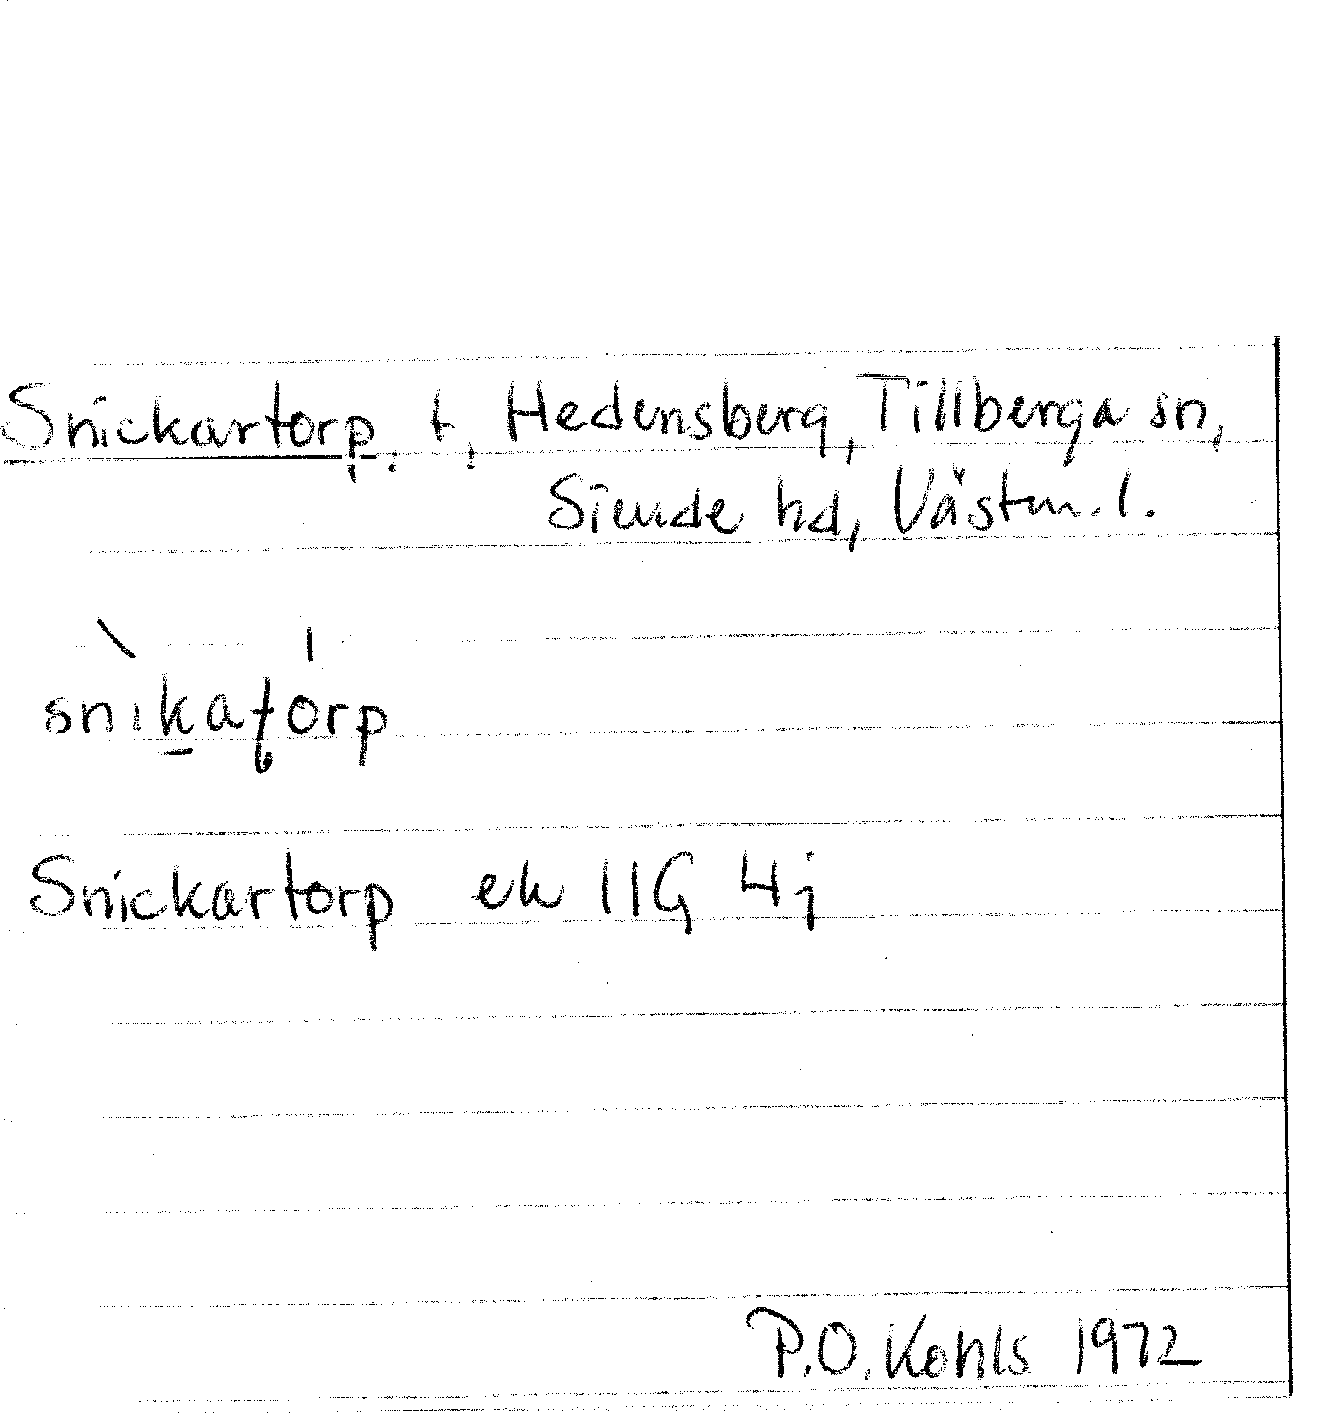 Snickartorp, t, Hedensberg, Tillberga sn,
Siende hd, Västm. l.
snikatorp
Snickartorp ek 11G 4j
P.O. Kohls 1972